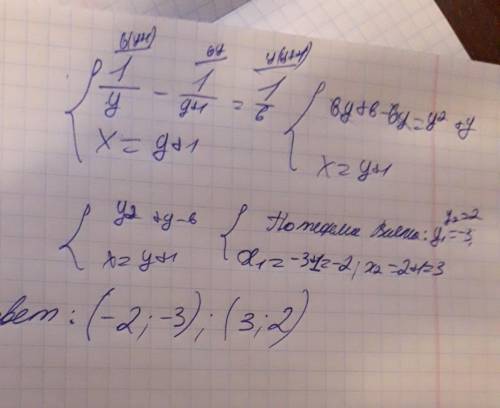 6(y+1) 6y y(y+1)
{ 1/y - 1/y+1 = 1/6
x = y+1
{ 6y+6-6y=y²+y
x=y+1
{ y2 +y-6
x=y+1
{ По теореме Виета: y1=-3; y2=2
x1=-3+1=-2; x2=2+1=3
вет: (-2; -3); (3; 2)